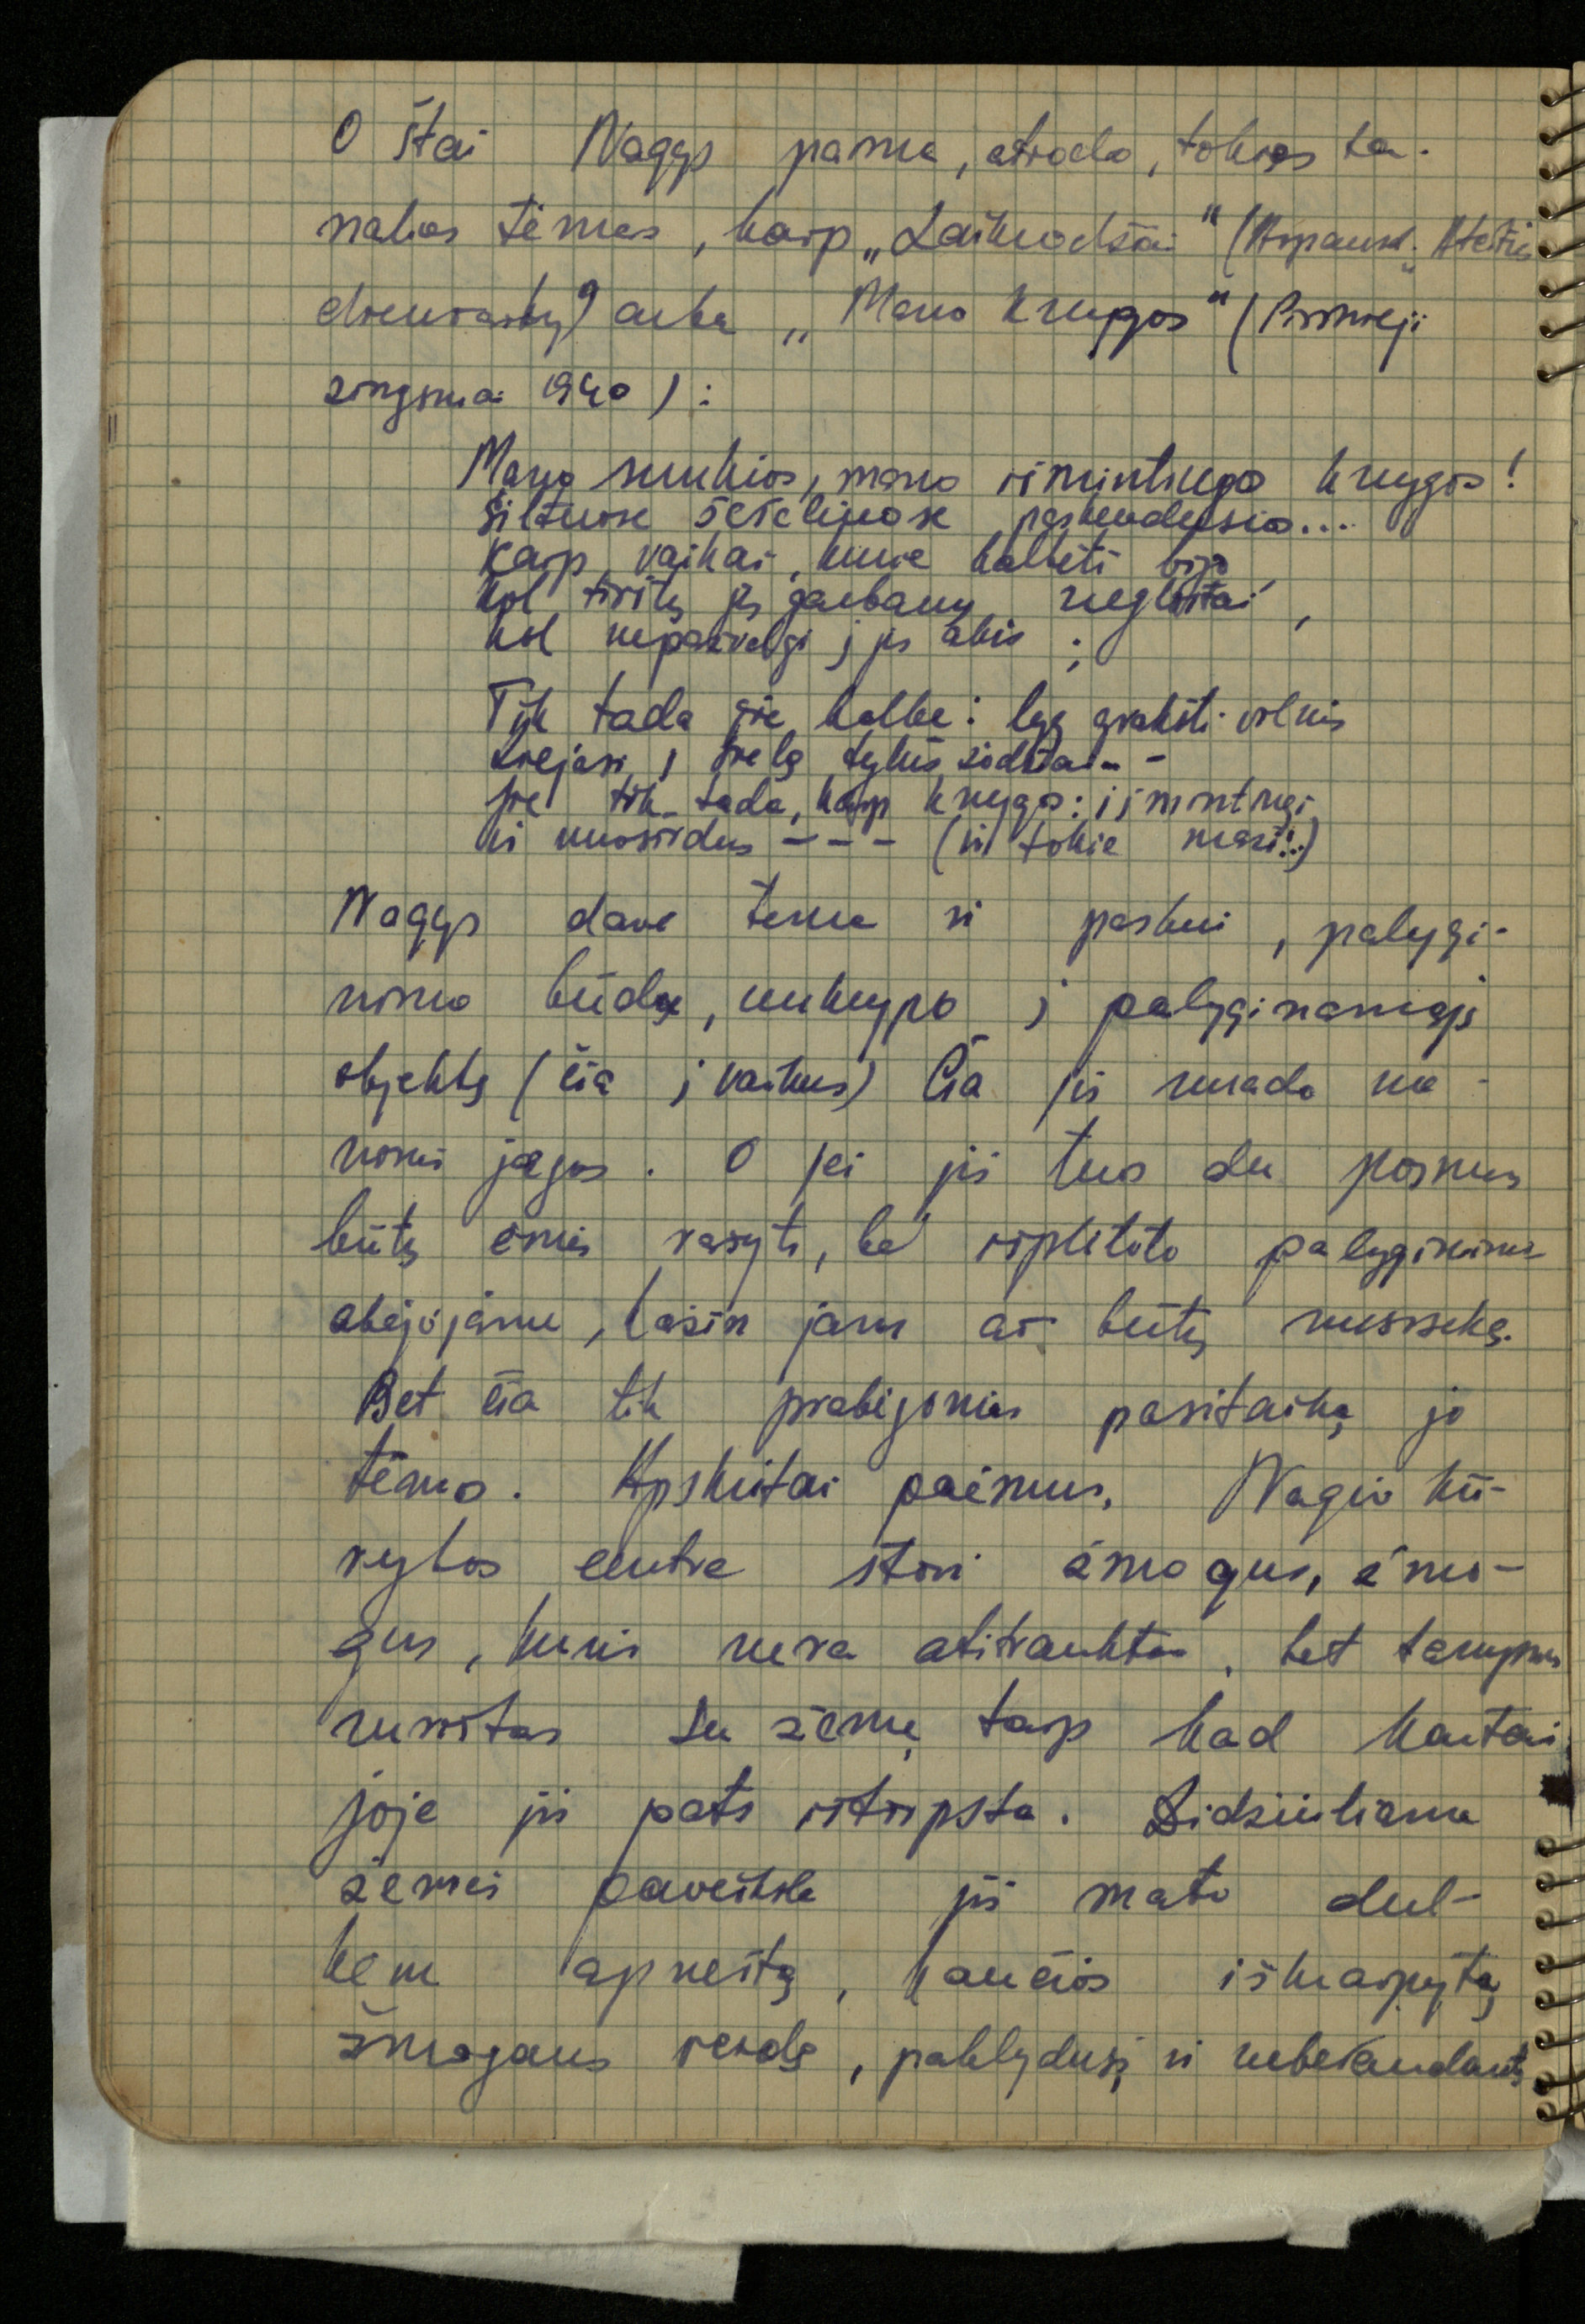 O štai Nagys paima, atrodo, tokias ba-
nalias temas, kaip „Laikrodžiai" (Ateities
arba „Mano knygos" (Pirmieji
žingsniai 1940):
Mano puikios, mano išmintingo knygos!
Šiltuose šešėliuose paskendusios...
Kaip vaikai, kurie kalbėti bijo
kol širšių jų garbanų neglostai,
kol nepažvelgi į jų akis;
Tik tada jie kalba: lyg grakšti vilnis
liejasi į sielą tylūs žodžiai - -
jie tik tada, kaip knygos: išmintingi
ir nuoširdus - - - (ir tokie maži!..)
Nagys davė temą ir paskui, palygi-
nimo būdu, nukrypo į palyginamąjį
objektą (čia į vaikus) Čia jis surado na-
mi jėgos. O jei jis tuos du posmus
būtų ėmęs rašyti, be išplėtoto palyginimo
abejojame, kažin jam ar būtų nusisekę.
Bet čia tik prabėgomis pasitaikę jo
temo. Apskritai paėmus, Nagio kū-
rybos centre stovi žmogus, žmo-
gus, kuris nėra atitrauktas, bet tampriai
surištas su žeme, taip kad kartais
joje jis pats ištirpsta. Didžiuliame
žemės paveiksle jis mato dul-
kėm apneštą, kančios iškarpytą
žmogaus veidą, paklydusį ir neberandantį